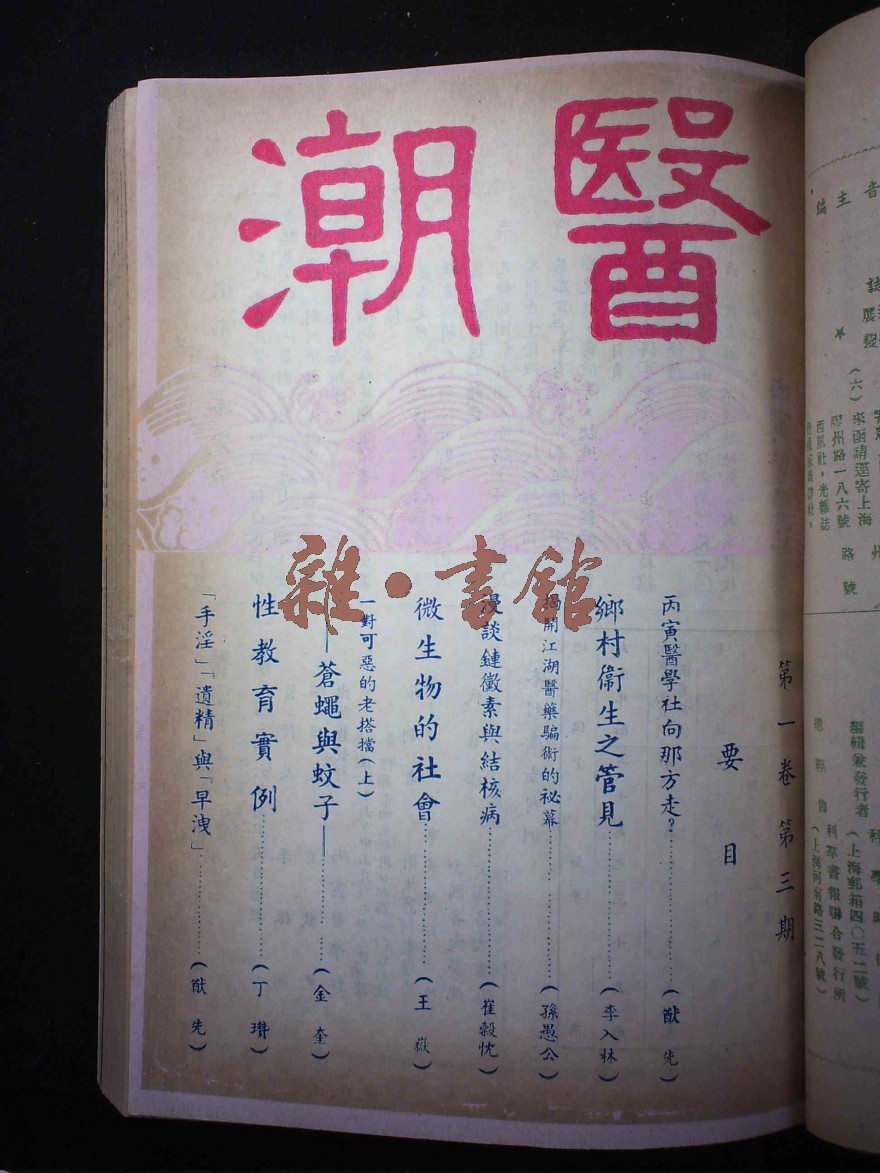 醫潮
第一卷第三期
要目
丙寅醫學社向那方走？（猷先）
鄉村衞生之管見（李入林）
揭開江湖醫藥騙術的祕幕（孫愚公）
漫談鏈黴素與結核病（崔穀忱）
微生物的社會（王嶽）
一對可惡的老搭擋（上）
——蒼蠅與蚊子——（金奎）
性教育實例（丁瓚）
「手淫」「遺精」與「早洩」（猷先）
雜·書館
音主編
誌
展
★
（六）
來函請逕寄上海
膠州路一八六號
西風社，光雜誌
路號
州
編輯兼發行者
（上海郵箱四〇五二號）
總經售
科萃書報聯合發行所
（上海河南路三二八號）